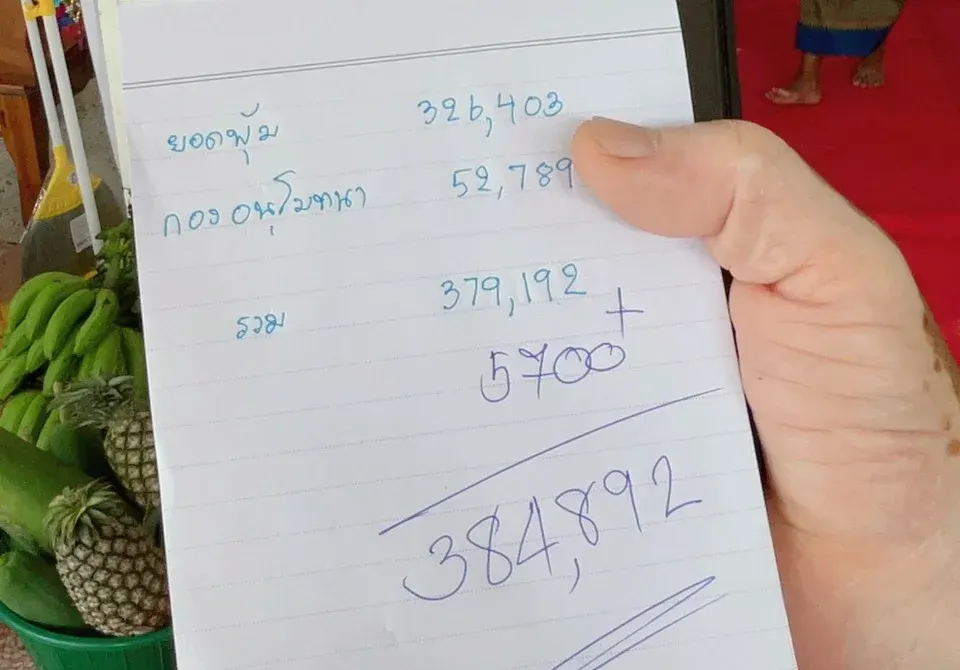 ยอดพุ่ม 326,403
กองอนุโมทนา 52,789
รวม 379,192
+
5700
384,892